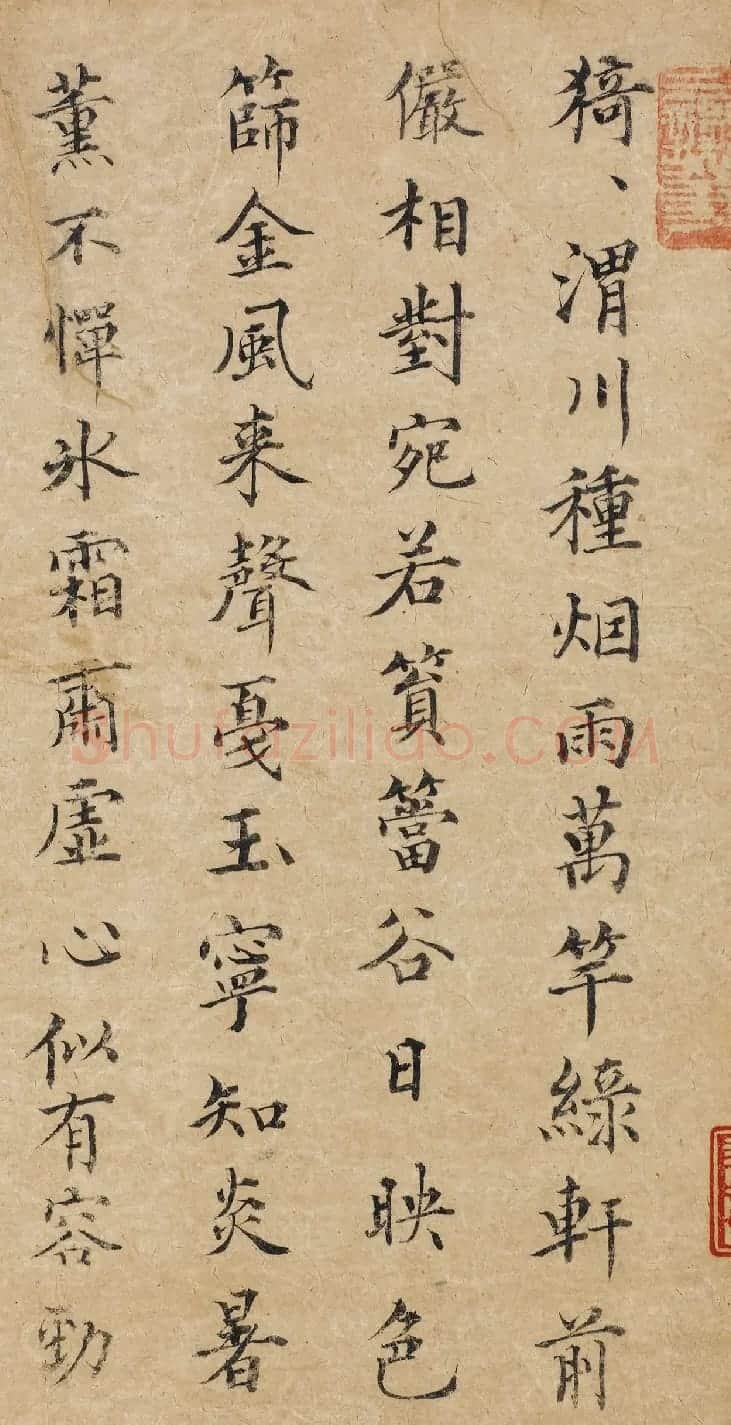 猗、渭川種烟雨萬竿綠軒前
儼相對宛若篔簹谷日映色
篩金風来聲戛玉寧知炎暑
薰不憚氷霜肅虛心似有容勁
shufaziliao.com